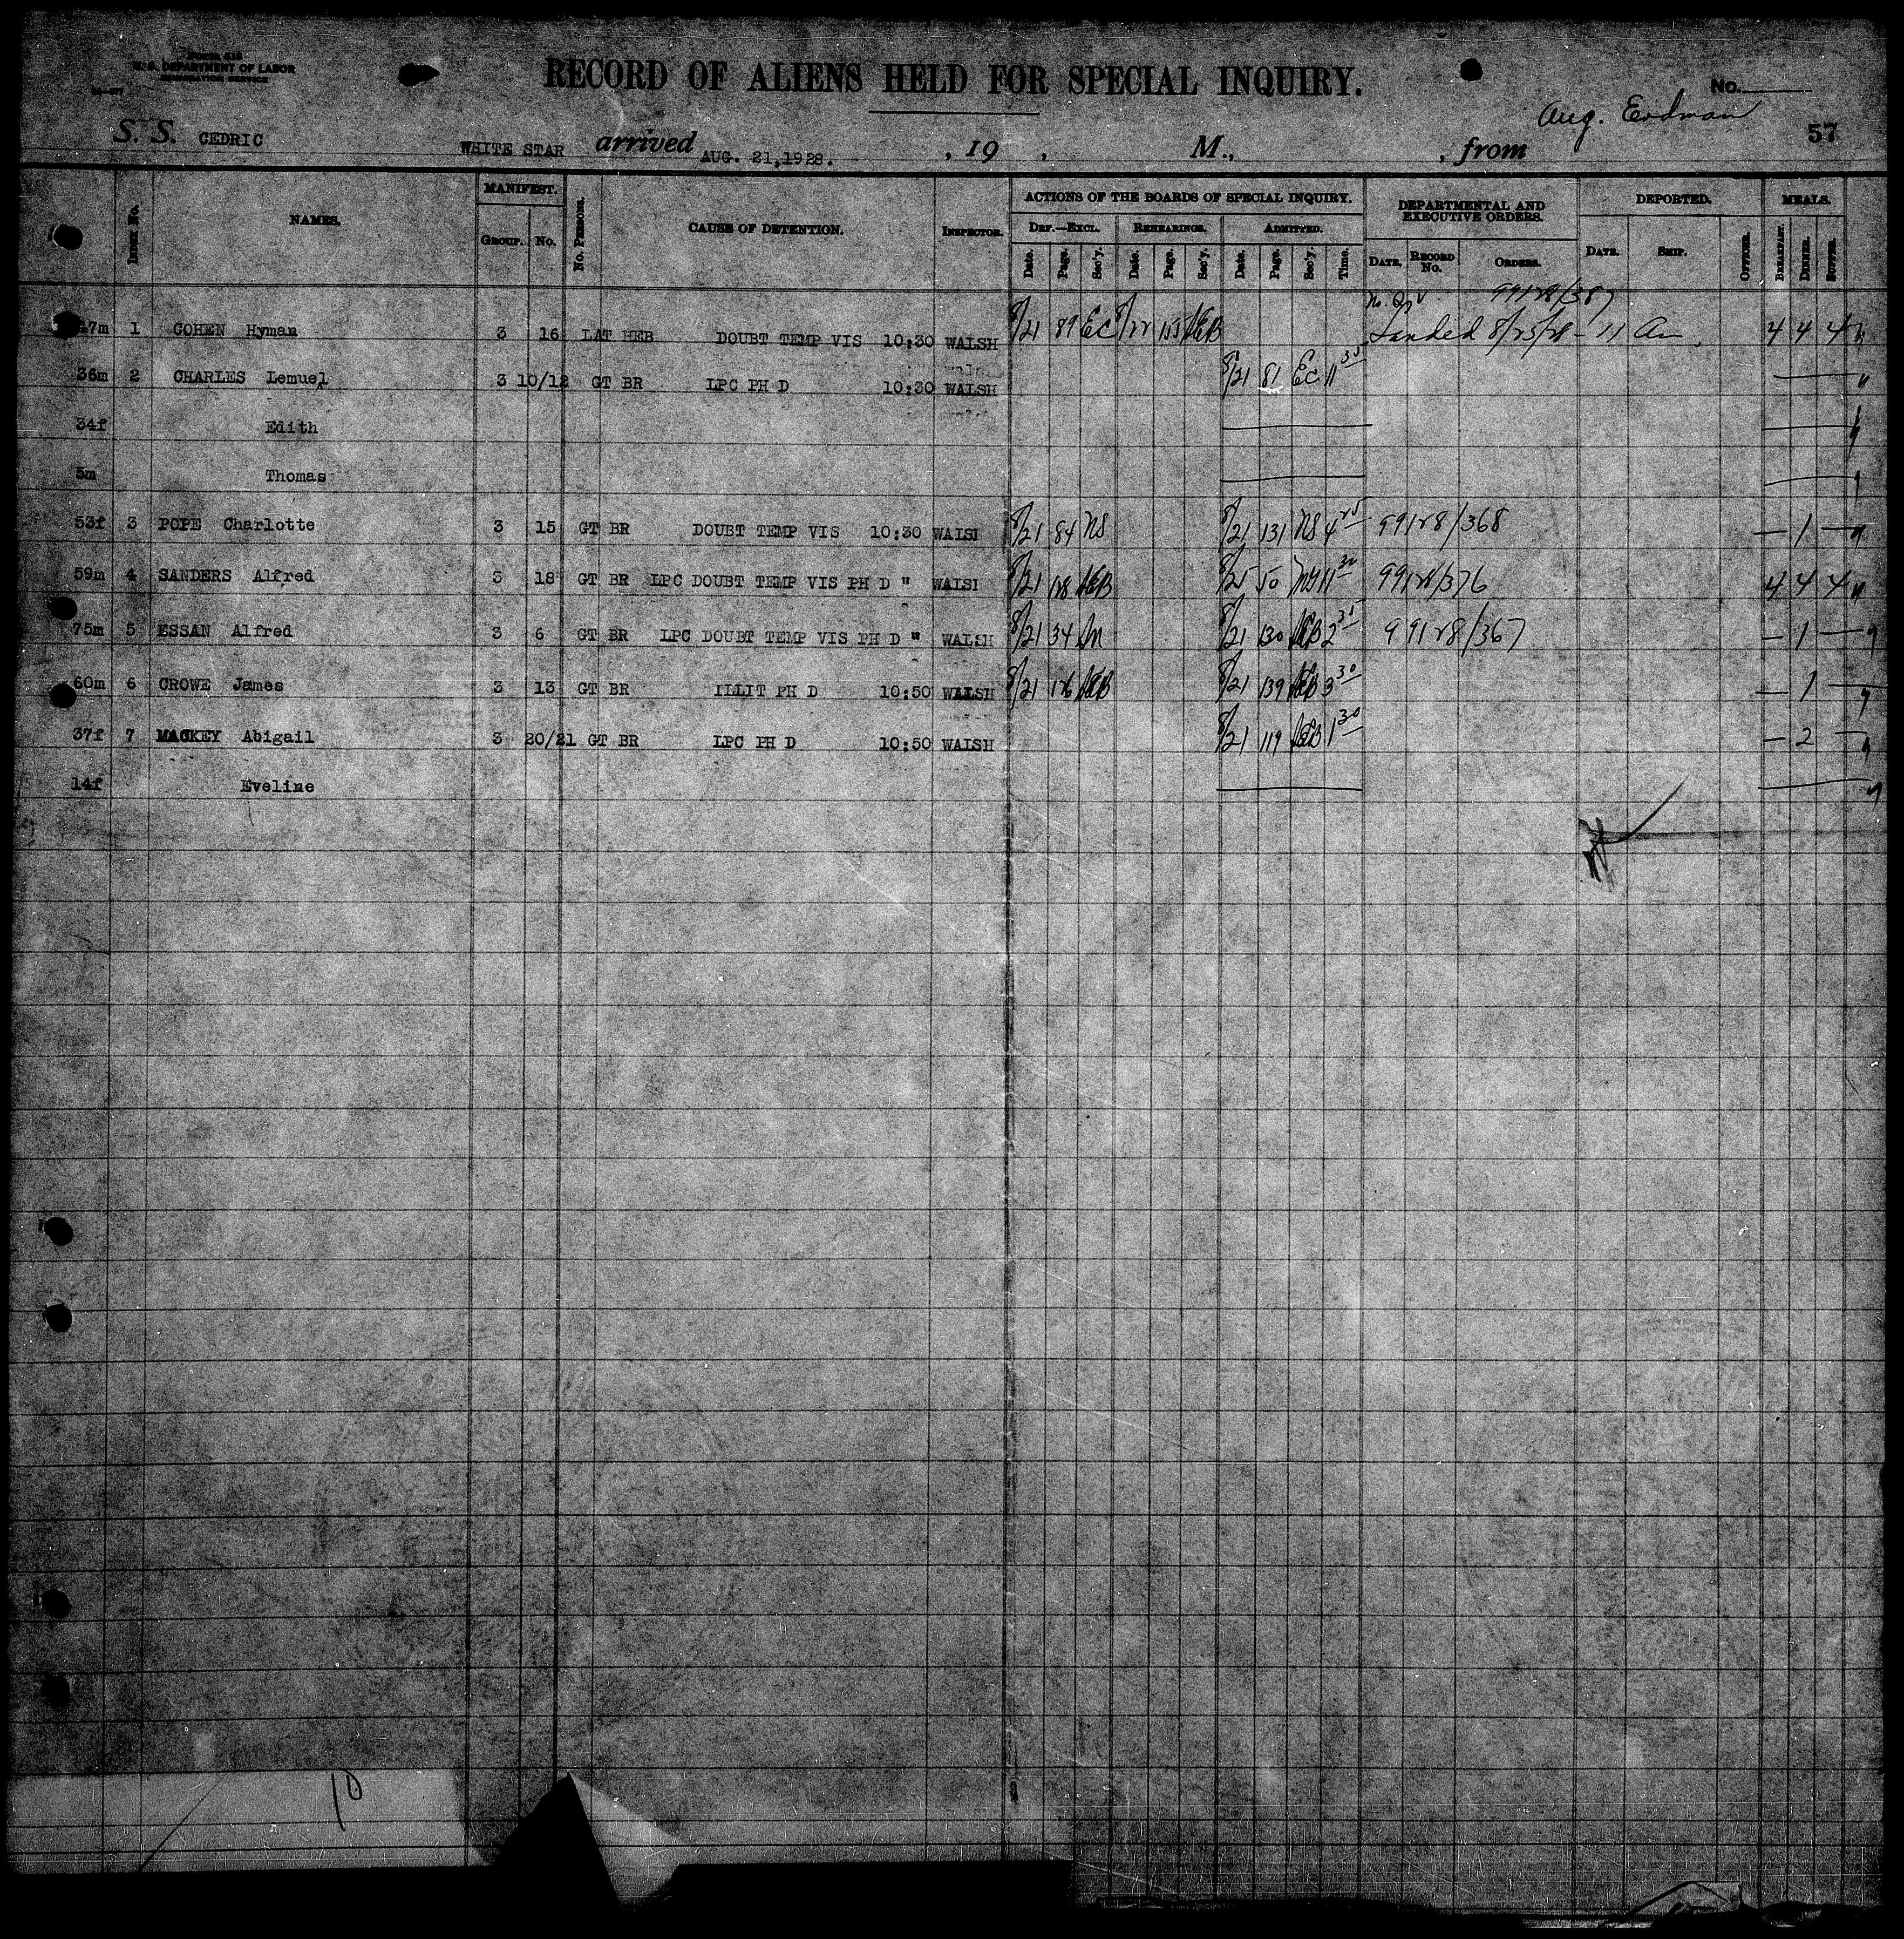 U. S. DEPARTMENT OF LABOR
IMMIGRATION SERVICE
RECORD OF ALIENS HELD FOR SPECIAL INQUIRY.
No.
Aug. Erdman
57
S. S. CEDRIC WHITE STAR arrived AUG. 21,1928. , 19 , M., , from
INDEX NO. NAMES. MANIFEST. GROUP. NO. NO. PERSONS. CAUSE OF DETENTION. INSPECTOR. ACTIONS OF THE BOARDS OF SPECIAL INQUIRY. DEPARTMENTAL AND EXECUTIVE ORDERS. DEPORTED. MEALS.
DEF.—EXCL. REHEARINGS. ADMITTED.
Date. Page. Sec'y. Date. Page. Sec'y. Date. Page. Sec'y. Time. DATE. RECORD NO. ORDERS. DATE. SHIP. OFFICER. BREAKFAST. DINNER. SUPPER.
99128/387
47m 1 COHEN Hyman 3 16 LAT HEB DOUBT TEMP VIS 10:30 WALSH 8/21 89 EC 8/22 155 AEB Landed 8/25/28 - 11 Am 4 4 4
36m 2 CHARLES Lemuel 3 10/12 GT BR LPC PH D 10:30 WALSH 8/21 81 EC 11 35
34f Edith
5m Thomas
53f 3 POPE Charlotte 3 15 GT BR DOUBT TEMP VIS 10:30 WALSH 8/21 84 NS 8/21 131 NS 4 25 99128/368 — 1 —
59m 4 SANDERS Alfred 3 18 GT BR LPC DOUBT TEMP VIS PH D " WALSH 8/21 128 AEB 8/25 50 11 30 99128/376 4 4 4
75m 5 ESSAN Alfred 3 6 GT BR LPC DOUBT TEMP VIS PH D " WALSH 8/21 34 8/21 130 AEB 2 35 99128/367 — 1 —
60m 6 CROWE James 3 13 GT BR ILLIT PH D 10:50 WALSH 8/21 126 AEB 8/21 139 AEB 3 30 — 1 —
37f 7 MACKEY Abigail 3 20/21 GT BR LPC PH D 10:50 WALSH 8/21 119 AEB 1 30 — 2 —
14f Eveline